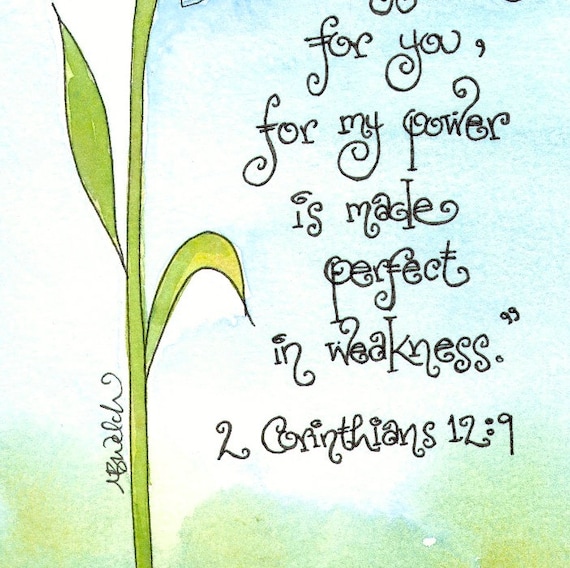 for you,
for my power
is made
perfect
in weakness."
2 Corinthians 12:9